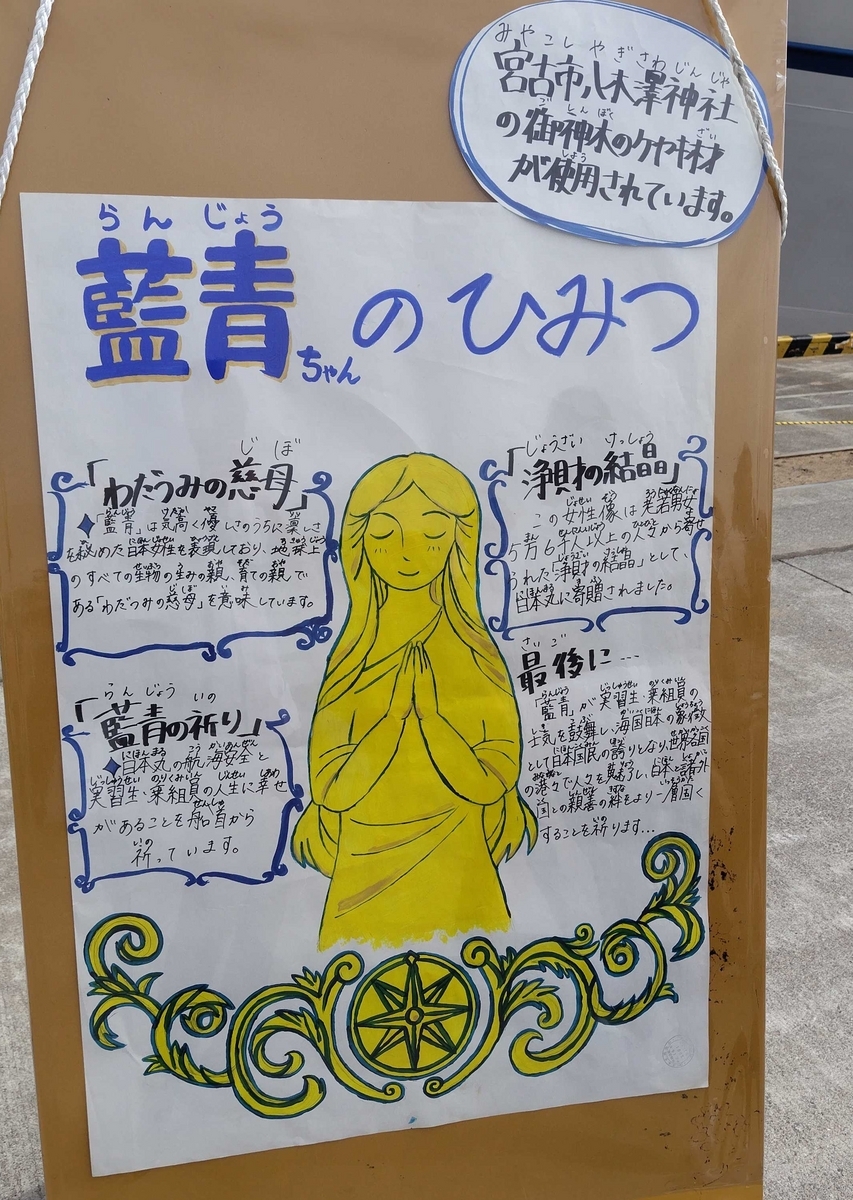 みやこし やぎさわじんじゃ
宮古市八木澤神社
ごしんぼく ざい
の御神木のケヤキ材
しよう
が使用されています。
らんじょう
藍青ちゃんのひみつ
じぼ
「わだつみの慈母」
「藍青」は気高く優しさのうちに凛しさ
を秘めた日本女性を表現しており、地球上
のすべての生物の生みの親、育ての親で
ある「わだつみの慈母」を意味しています。
じょうざい けっしょう
「浄財の結晶」
この女性像は老若男女
5万6千人以上の人々から寄せ
られた「浄財の結晶」として、
日本丸に寄贈されました。
らんじょう いの
「藍青の祈り」
日本丸の航海安全と
実習生・乗組員の人生に幸せ
があることを船首から
祈っています。
さいご
最後に…
「藍青」が実習生・乗組員の
士気を鼓舞し、海国日本の象徴
として日本国民の誇りとなり、世界各国
の港々で人々を魅了し、日本と諸外
国との親善の絆をより一層固く
することを祈ります…